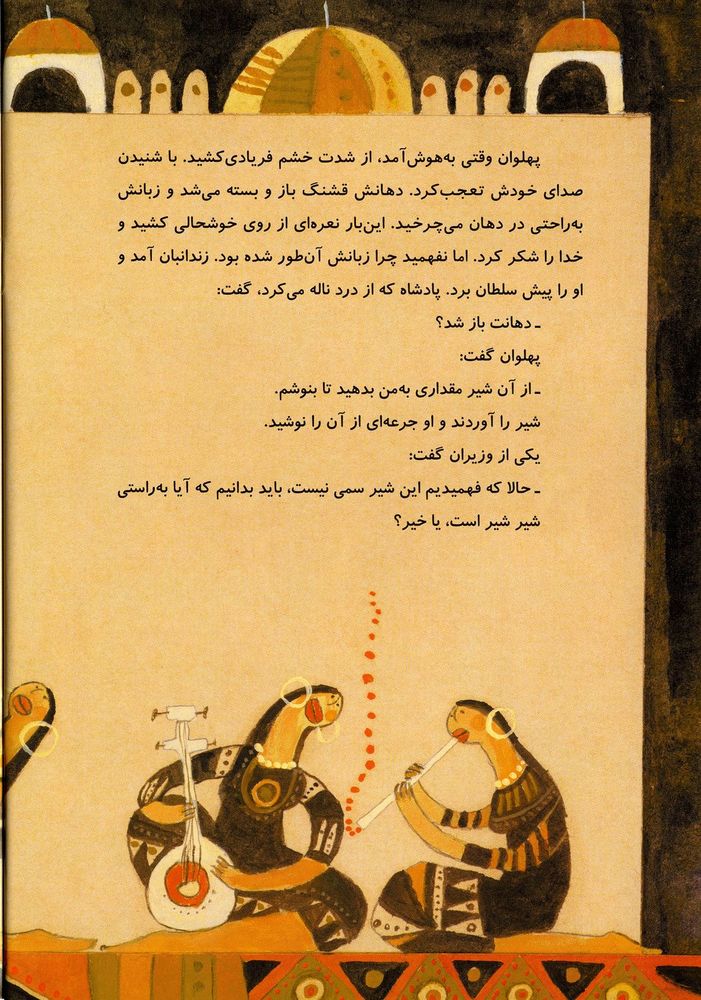 پهلوان وقتی به‌هوش‌آمد، از شدت خشم فریادی‌کشید. با شنیدن
صدای خودش تعجب‌کرد. دهانش قشنگ باز و بسته می‌شد و زبانش
به‌راحتی در دهان می‌چرخید. این‌بار نعره‌ای از روی خوشحالی کشید و
خدا را شکر کرد. اما نفهمید چرا زبانش آن‌طور شده بود. زندانبان آمد و
او را پیش سلطان برد. پادشاه که از درد ناله می‌کرد، گفت:
ـ دهانت باز شد؟
پهلوان گفت:
ـ از آن شیر مقداری به‌من بدهید تا بنوشم.
شیر را آوردند و او جرعه‌ای از آن را نوشید.
یکی از وزیران گفت:
ـ حالا که فهمیدیم این شیر سمی نیست، باید بدانیم که آیا به‌راستی
شیر شیر است، یا خیر؟